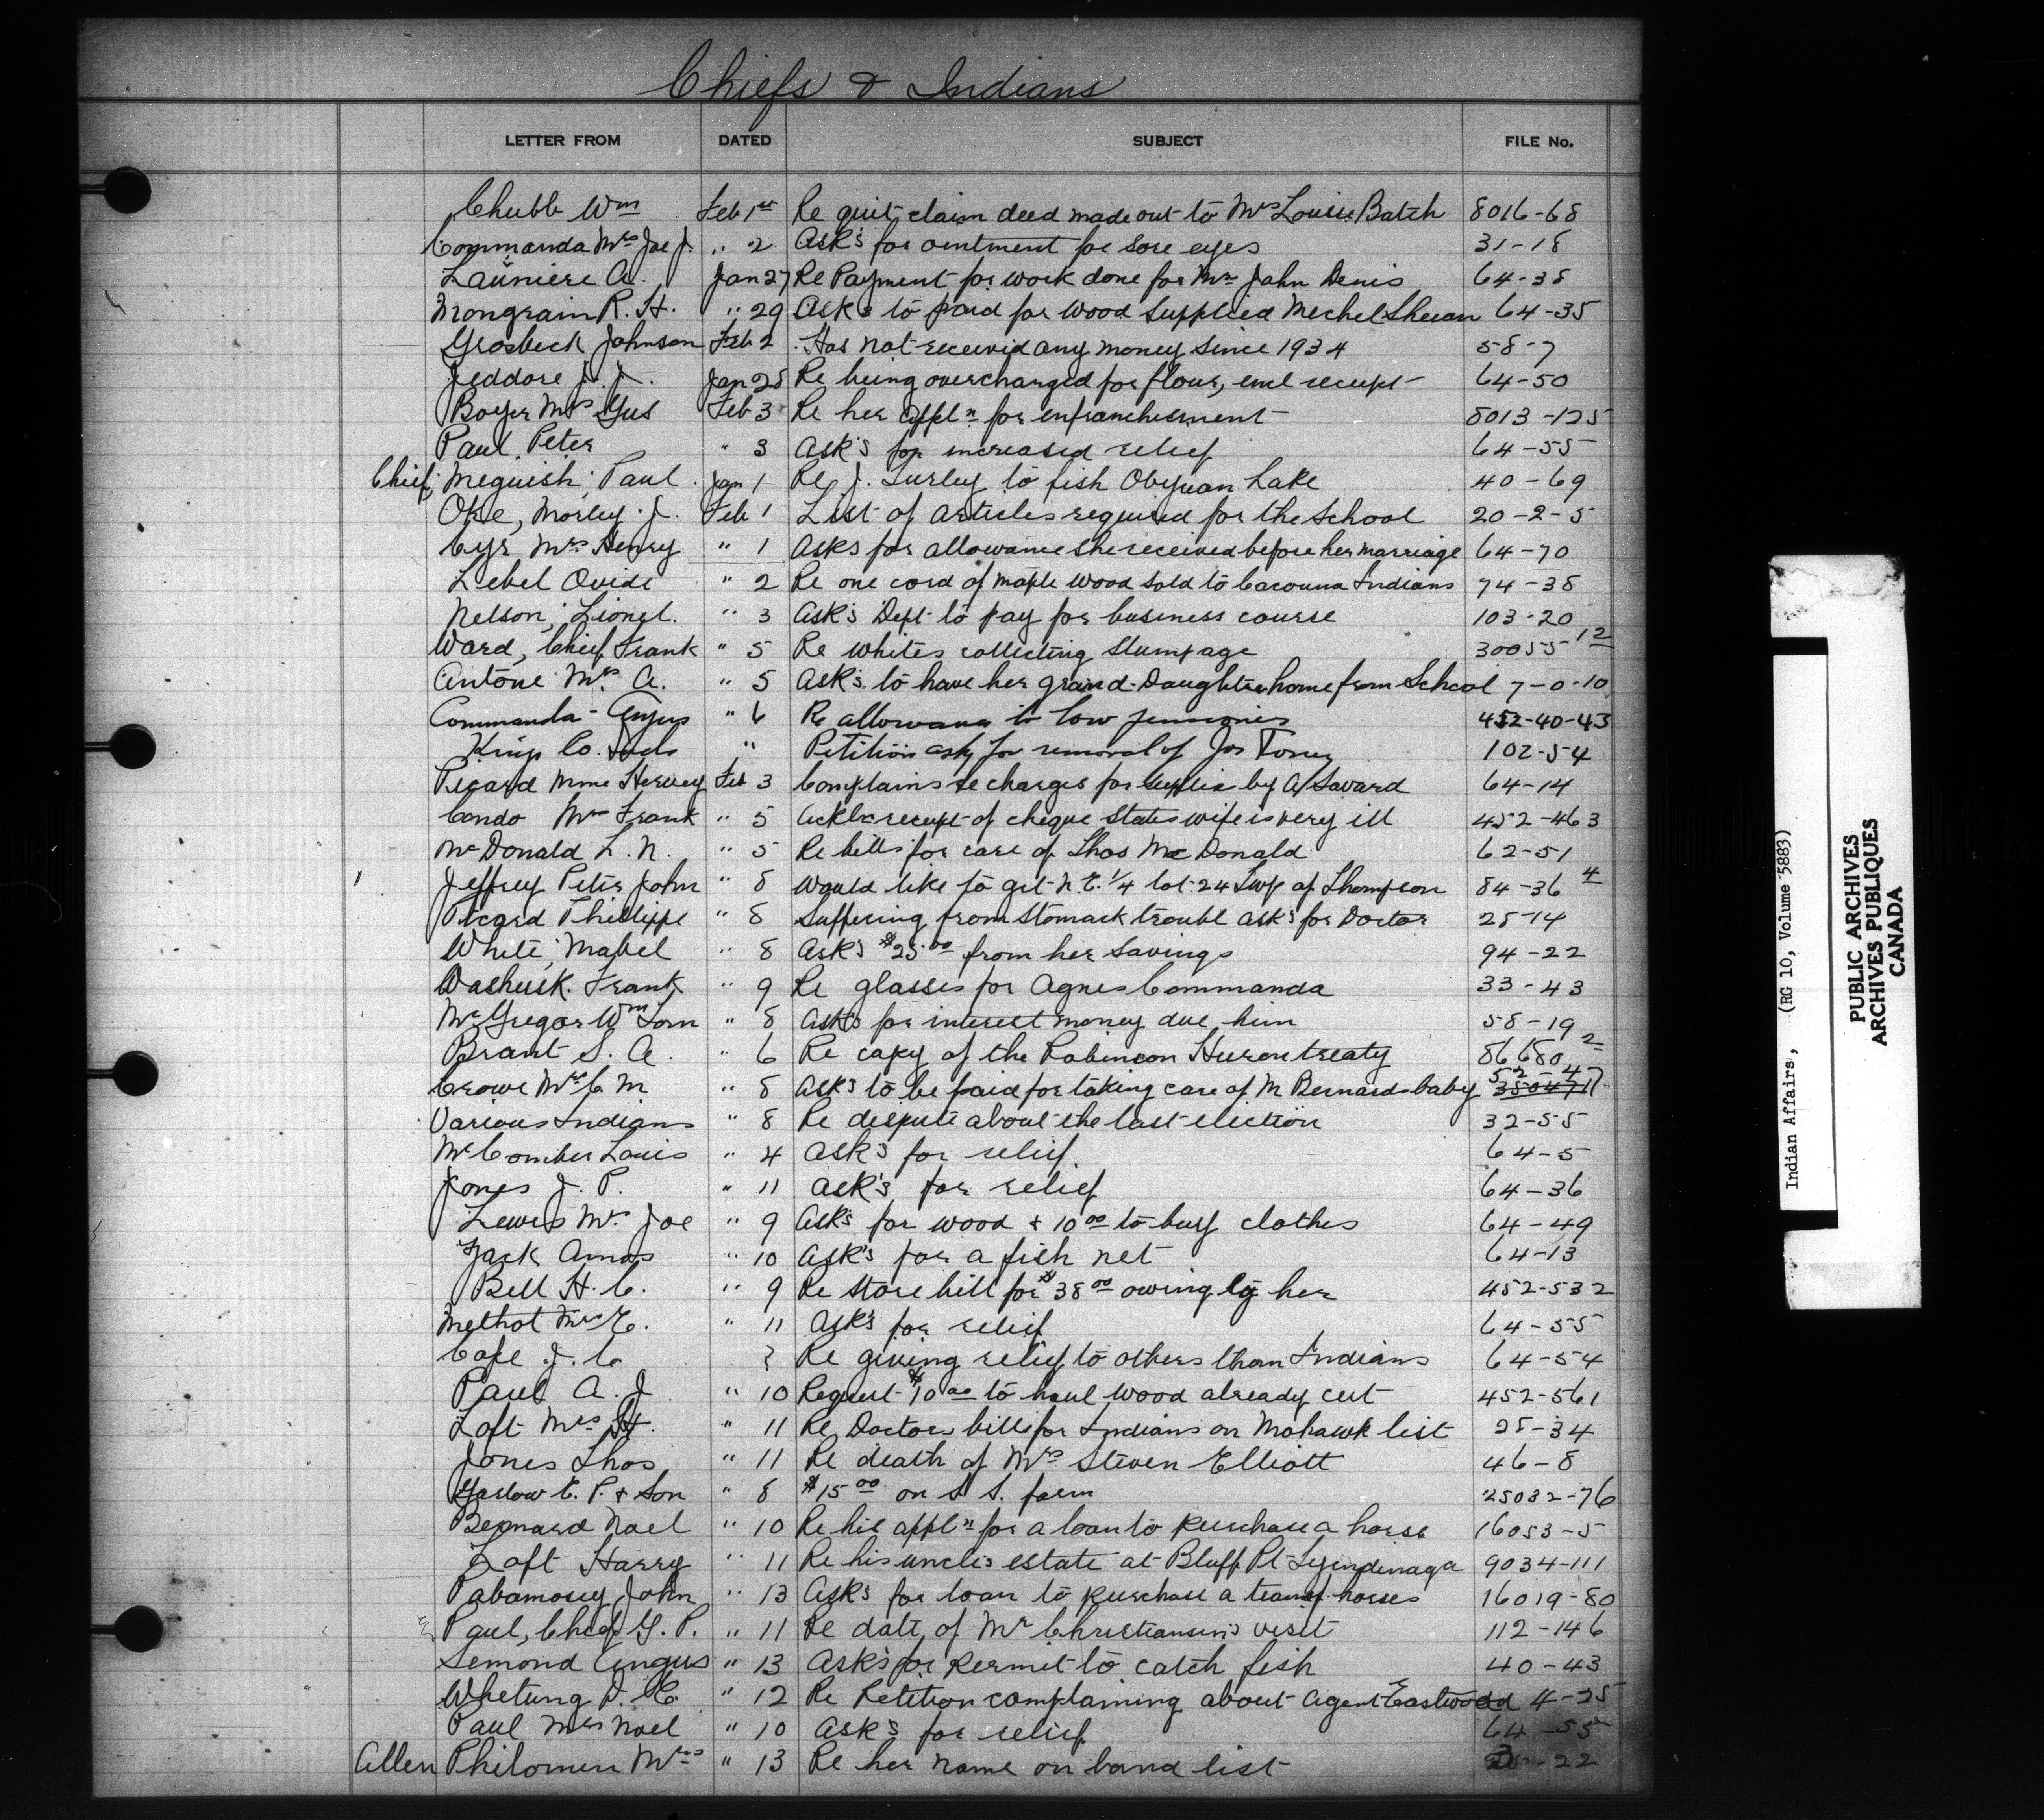 Chiefs & Indians
LETTER FROM DATED SUBJECT FILE No.
Chubb Wm Feb 1st Re quit claim deed made out to Mrs Louise Batch 8016-68
Commanda Mrs Joe J. " 2 Ask's for ointment for sore eyes 31-18
Launiere A. Jan 27 Re Payment for work done for Mr John Denis 64-38
Mongrain R. H. " 29 Ask's to paid for wood supplied Mechel 64-35
Grosbeck Johnson Feb 2 Has not received any money since 1934 58-7
Jeddore J. J. Jan 28 Re being overcharged for flour, encl receipt 64-50
Boyer Mrs Gus Feb 3 Re her appln for enfranchisement 8013-125
Paul Peter " 3 Ask's for increased relief 64-55
Chief, Meguish, Paul Jan 1 Re J. Turley to fish Lake 40-69
Oke, Morley J. Feb 1 List of articles required for the School 20-2-5
Cyr Mrs Henry " 1 Asks for allowance she received before her marriage 64-70
Lebel Ovide " 2 Re one cord of maple wood sold to Cacouna Indians 74-38
Nelson, Lionel. " 3 Ask's Dept to pay for business course 103-20
Ward, Chief Frank " 5 Re whites collecting stumpage 30055-12
Antone Mrs A. " 5 Ask's to have her grand-Daughter home from School 7-0-10
Commanda - Angus " 6 Re allowance to 452-40-43
Kings Co. Inds " Petition ask for removal of Jos Toney 102-54
Picard Mme Hervey Feb 3 Complains re charges for supplies by A Savard 64-14
Condo Mr Frank " 5 Ackls receipt of cheque States wife is very ill 452-463
McDonald L. N. " 5 Re bills for care of Thos MacDonald 62-51
Jeffrey Peter John " 8 Would like to get N.E. 1/4 lot 24 Twp of Thompson 84-36 4
Picard Phillippe " 8 Suffering from stomack trouble ask's for Doctor 25-14
White, Mabel " 8 Ask's $25.00 from her savings 94-22
Washusk. Frank " 9 Re glasses for Agnes Commanda 33-43
McGregor Wm Tom " 8 Asks for interest money due him 58-19
Brant S. A. " 6 Re copy of the Robinson Huron treaty 86680 2
Crowe Mrs C M " 8 Asks to be paid for taking care of M Bernards baby 52-47
Various Indians " 8 Re dispute about the last election 32-55
McComber Louis " 4 Ask's for relief 64-5
Jones J. P. " 11 Ask's for relief 64-36
Lewis Mrs Joe " 9 Ask's for wood & 10.00 to buy clothes 64-49
Jack Amos " 10 Ask's for a fish net 64-13
Bell H. C. " 9 Re store bill for $38.00 owing by her 452-532
Methot Mrs E. " 11 Ask's for relief 64-55
Cope J. C. ? Re giving relief to others than Indians 64-54
Paul A. J " 10 Request $10.00 to haul wood already cut 452-561
Loft Mrs H. " 11 Re Doctors bills for Indians on Mohawk list 25-34
Jones Thos " 11 Re death of Mrs Steven Elliott 46-8
Garlow E. P. & Son " 8 $15.00 on S S. farm 25032-76
Bernard Noel " 10 Re his appln for a loan to purchase a horse 16053-5
Loft Harry " 11 Re his uncle's estate at Bluff Pt Tyendinaga 9034-111
Pabamosey John " 13 Ask's for loan to purchase a team of horses 16019-80
Paul, Chief G. P. " 11 Re date of Mr Christiansen's visit 112-146
Semond Angus " 13 Ask's for permit to catch fish 40-43
Whetung P. E. " 12 Re Petition complaining about agent Eastwood 4-25
Paul Mrs Noel " 10 Ask's for relief 64-55
Allen Philomen Mrs " 13 Re her name on band list -22
Indian Affairs, (RG 10, Volume 5883)
PUBLIC ARCHIVES
ARCHIVES PUBLIQUES
CANADA